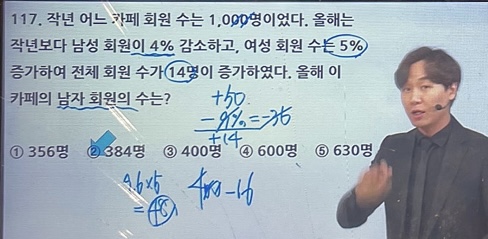 117. 작년 어느 카페 회원 수는 1,000명이었다. 올해는
작년보다 남성 회원이 4% 감소하고, 여성 회원 수는 5%
증가하여 전체 회원 수가 14명이 증가하였다. 올해 이
카페의 남자 회원의 수는?
+50
+14
① 356명 ② 384명 ③ 400명 ④ 600명 ⑤ 630명